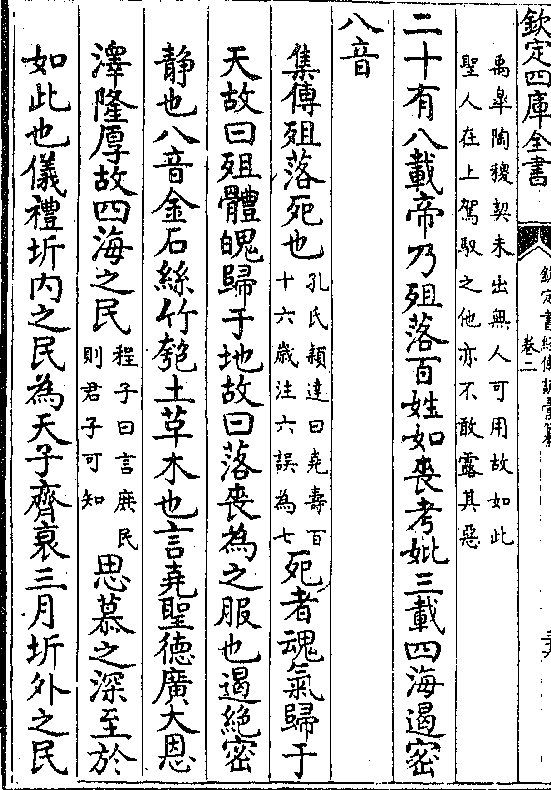 欽定四庫全書
欽定書經傳說彙纂 卷二
禹皋陶稷契未出無人可用故如此
聖人在上駕馭之他亦不敢露其惡
二十有八載帝乃殂落百姓如喪考妣三載四海遏密
八音
集傳殂落死也孔氏穎達曰堯壽百十六歲注六誤為七死者魂氣歸于
天故曰殂體魄歸于地故曰落喪為之服也遏絕密
靜也八音金石絲竹匏土草木也言堯聖德廣大恩
澤隆厚故四海之民程子曰言庶民則君子可知思慕之深至於
如此也儀禮圻內之民為天子齊衰三月圻外之民